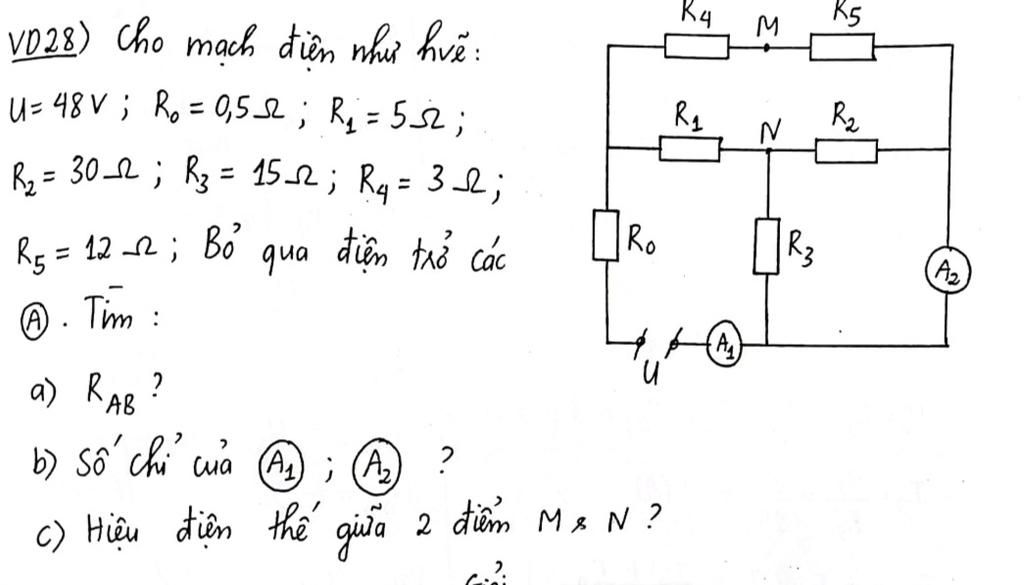 VD28) Cho mạch điện như hvẽ:
U = 48 V ; R₀ = 0,5 Ω ; R₁ = 5 Ω ;
R₂ = 30 Ω ; R₃ = 15 Ω ; R₄ = 3 Ω ;
R₅ = 12 Ω ; Bỏ qua điện trở các
Ⓐ . Tìm :
a) R_AB ?
b) Số chỉ của A₁ ; A₂ ?
c) Hiệu điện thế giữa 2 điểm M & N ?
R₄ M R₅
R₁ N R₂
R₀ R₃ A₂
U A₁